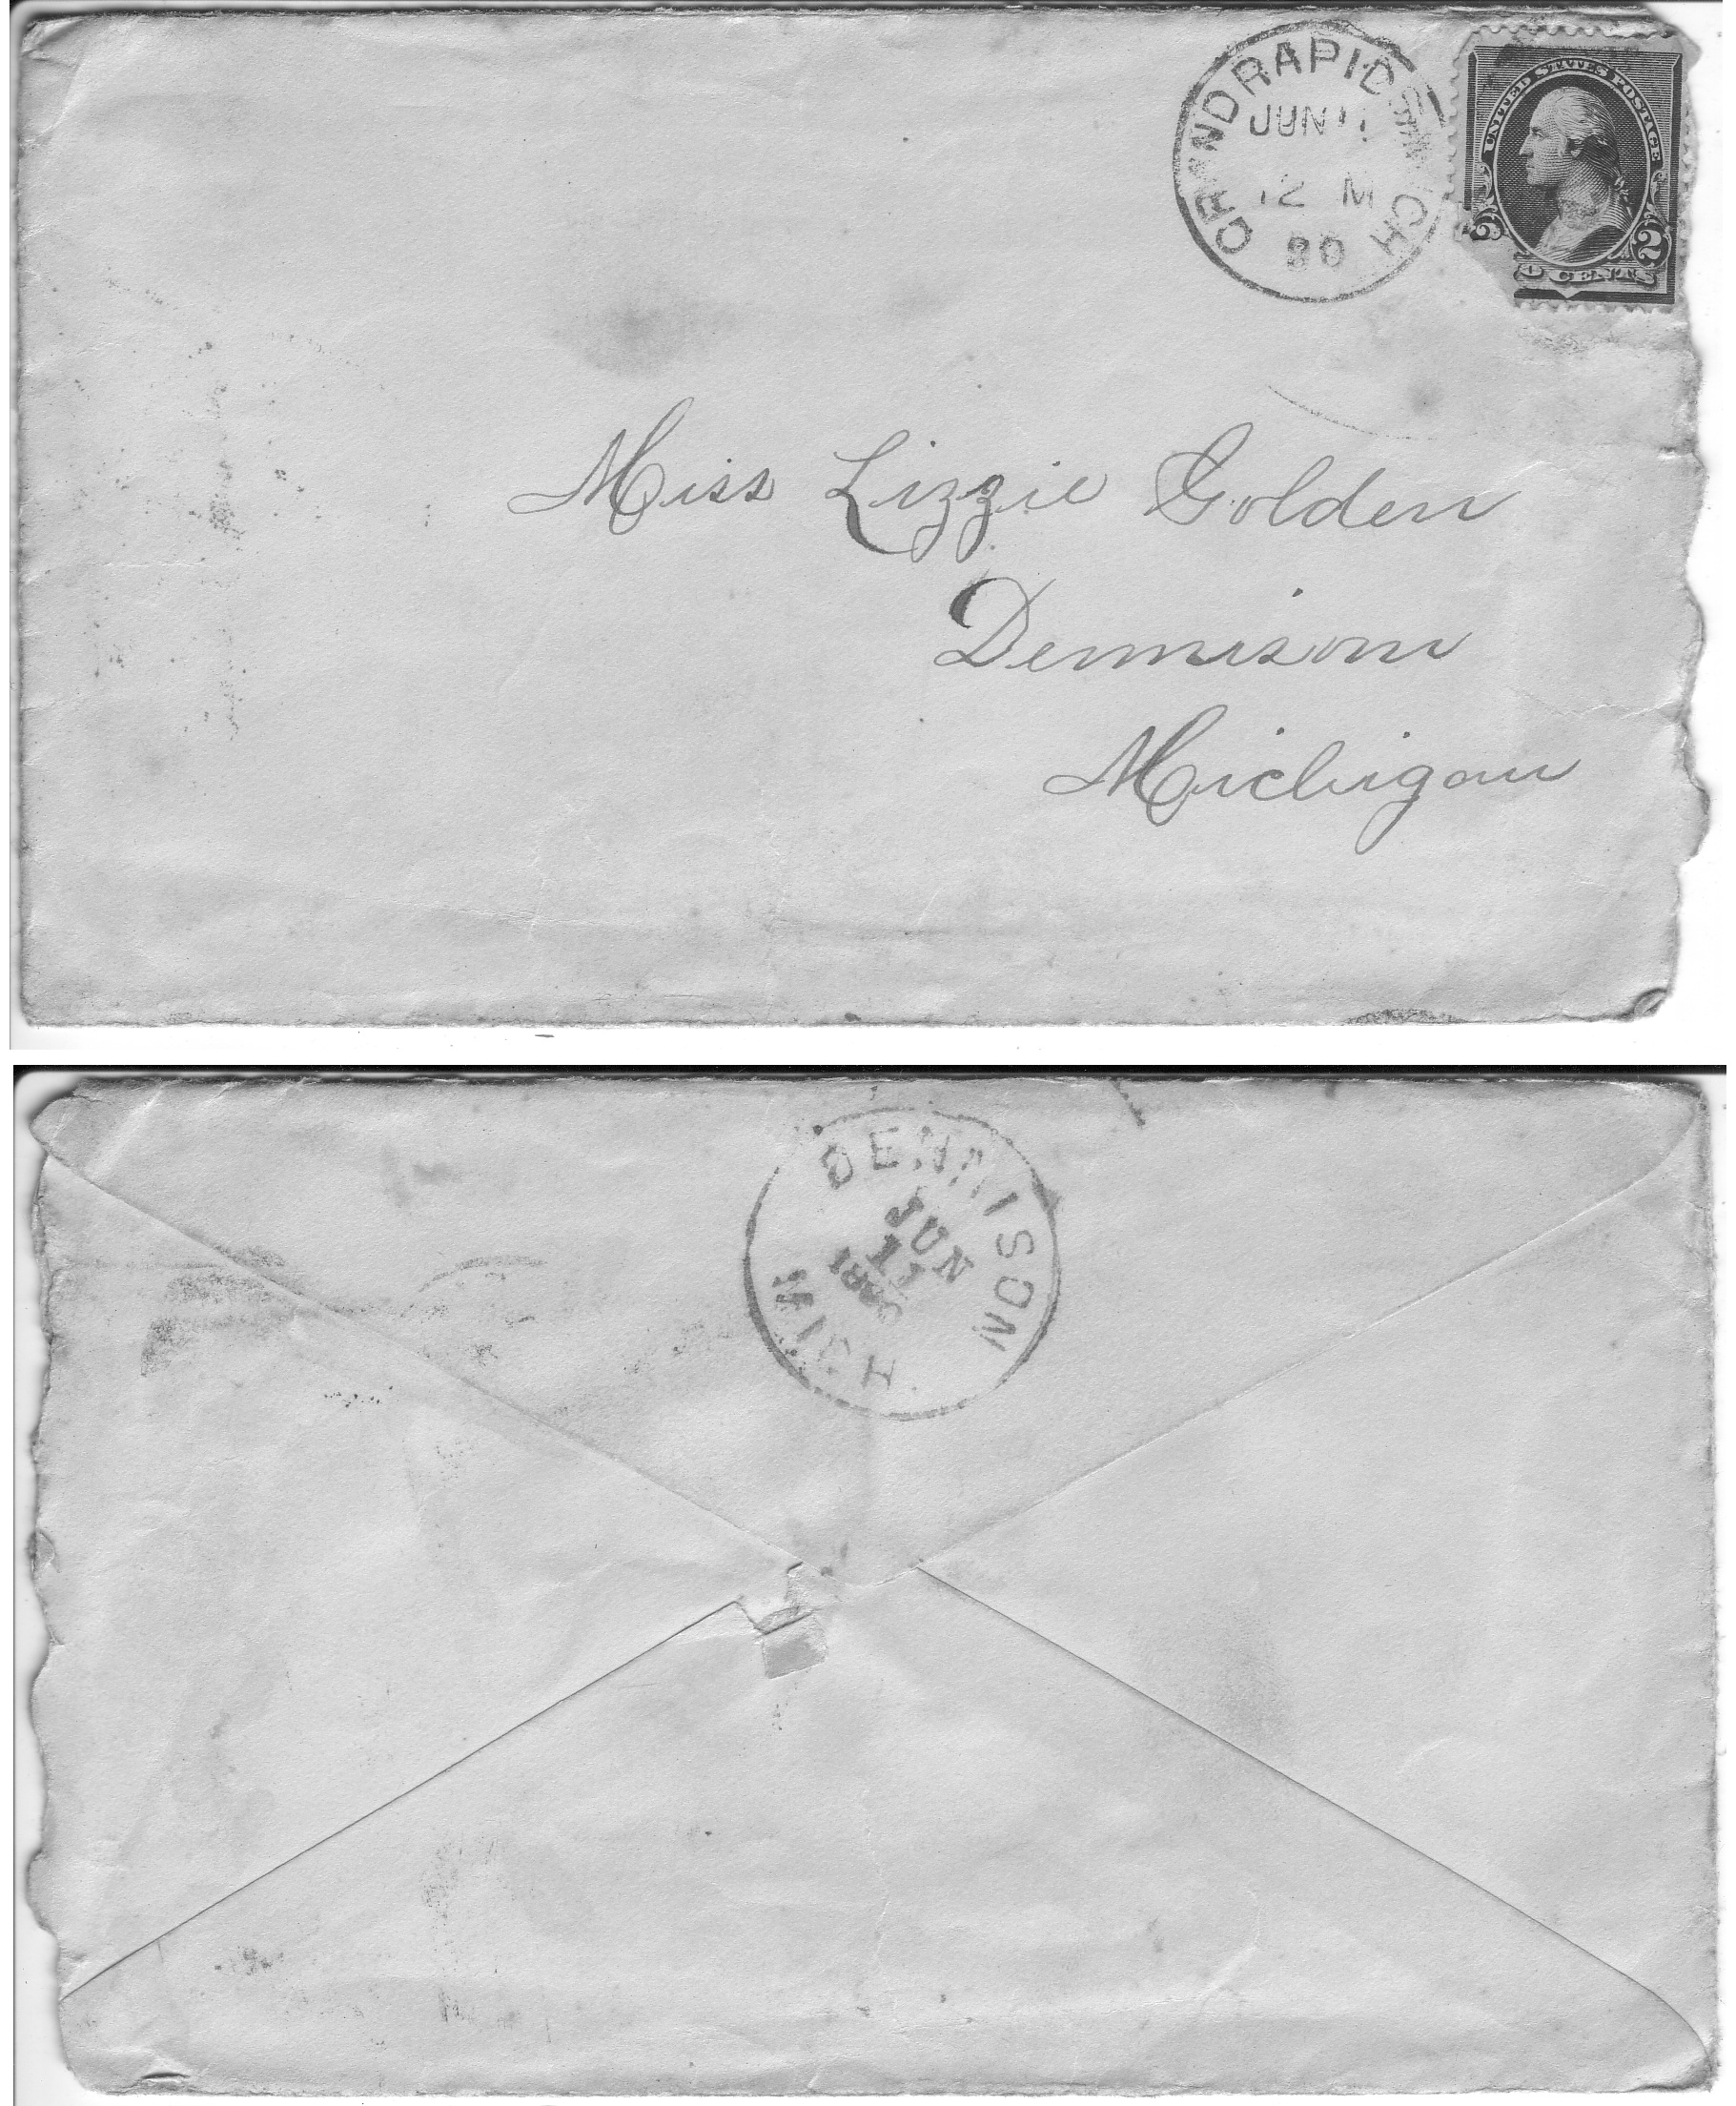 GRAND RAPIDS, MICH
JUN 11
12 M
90
UNITED STATES POSTAGE
2 2
CENTS
Miss Lizzie Golden
Dennison
Michigan
DENNISON
JUN
11
MICH